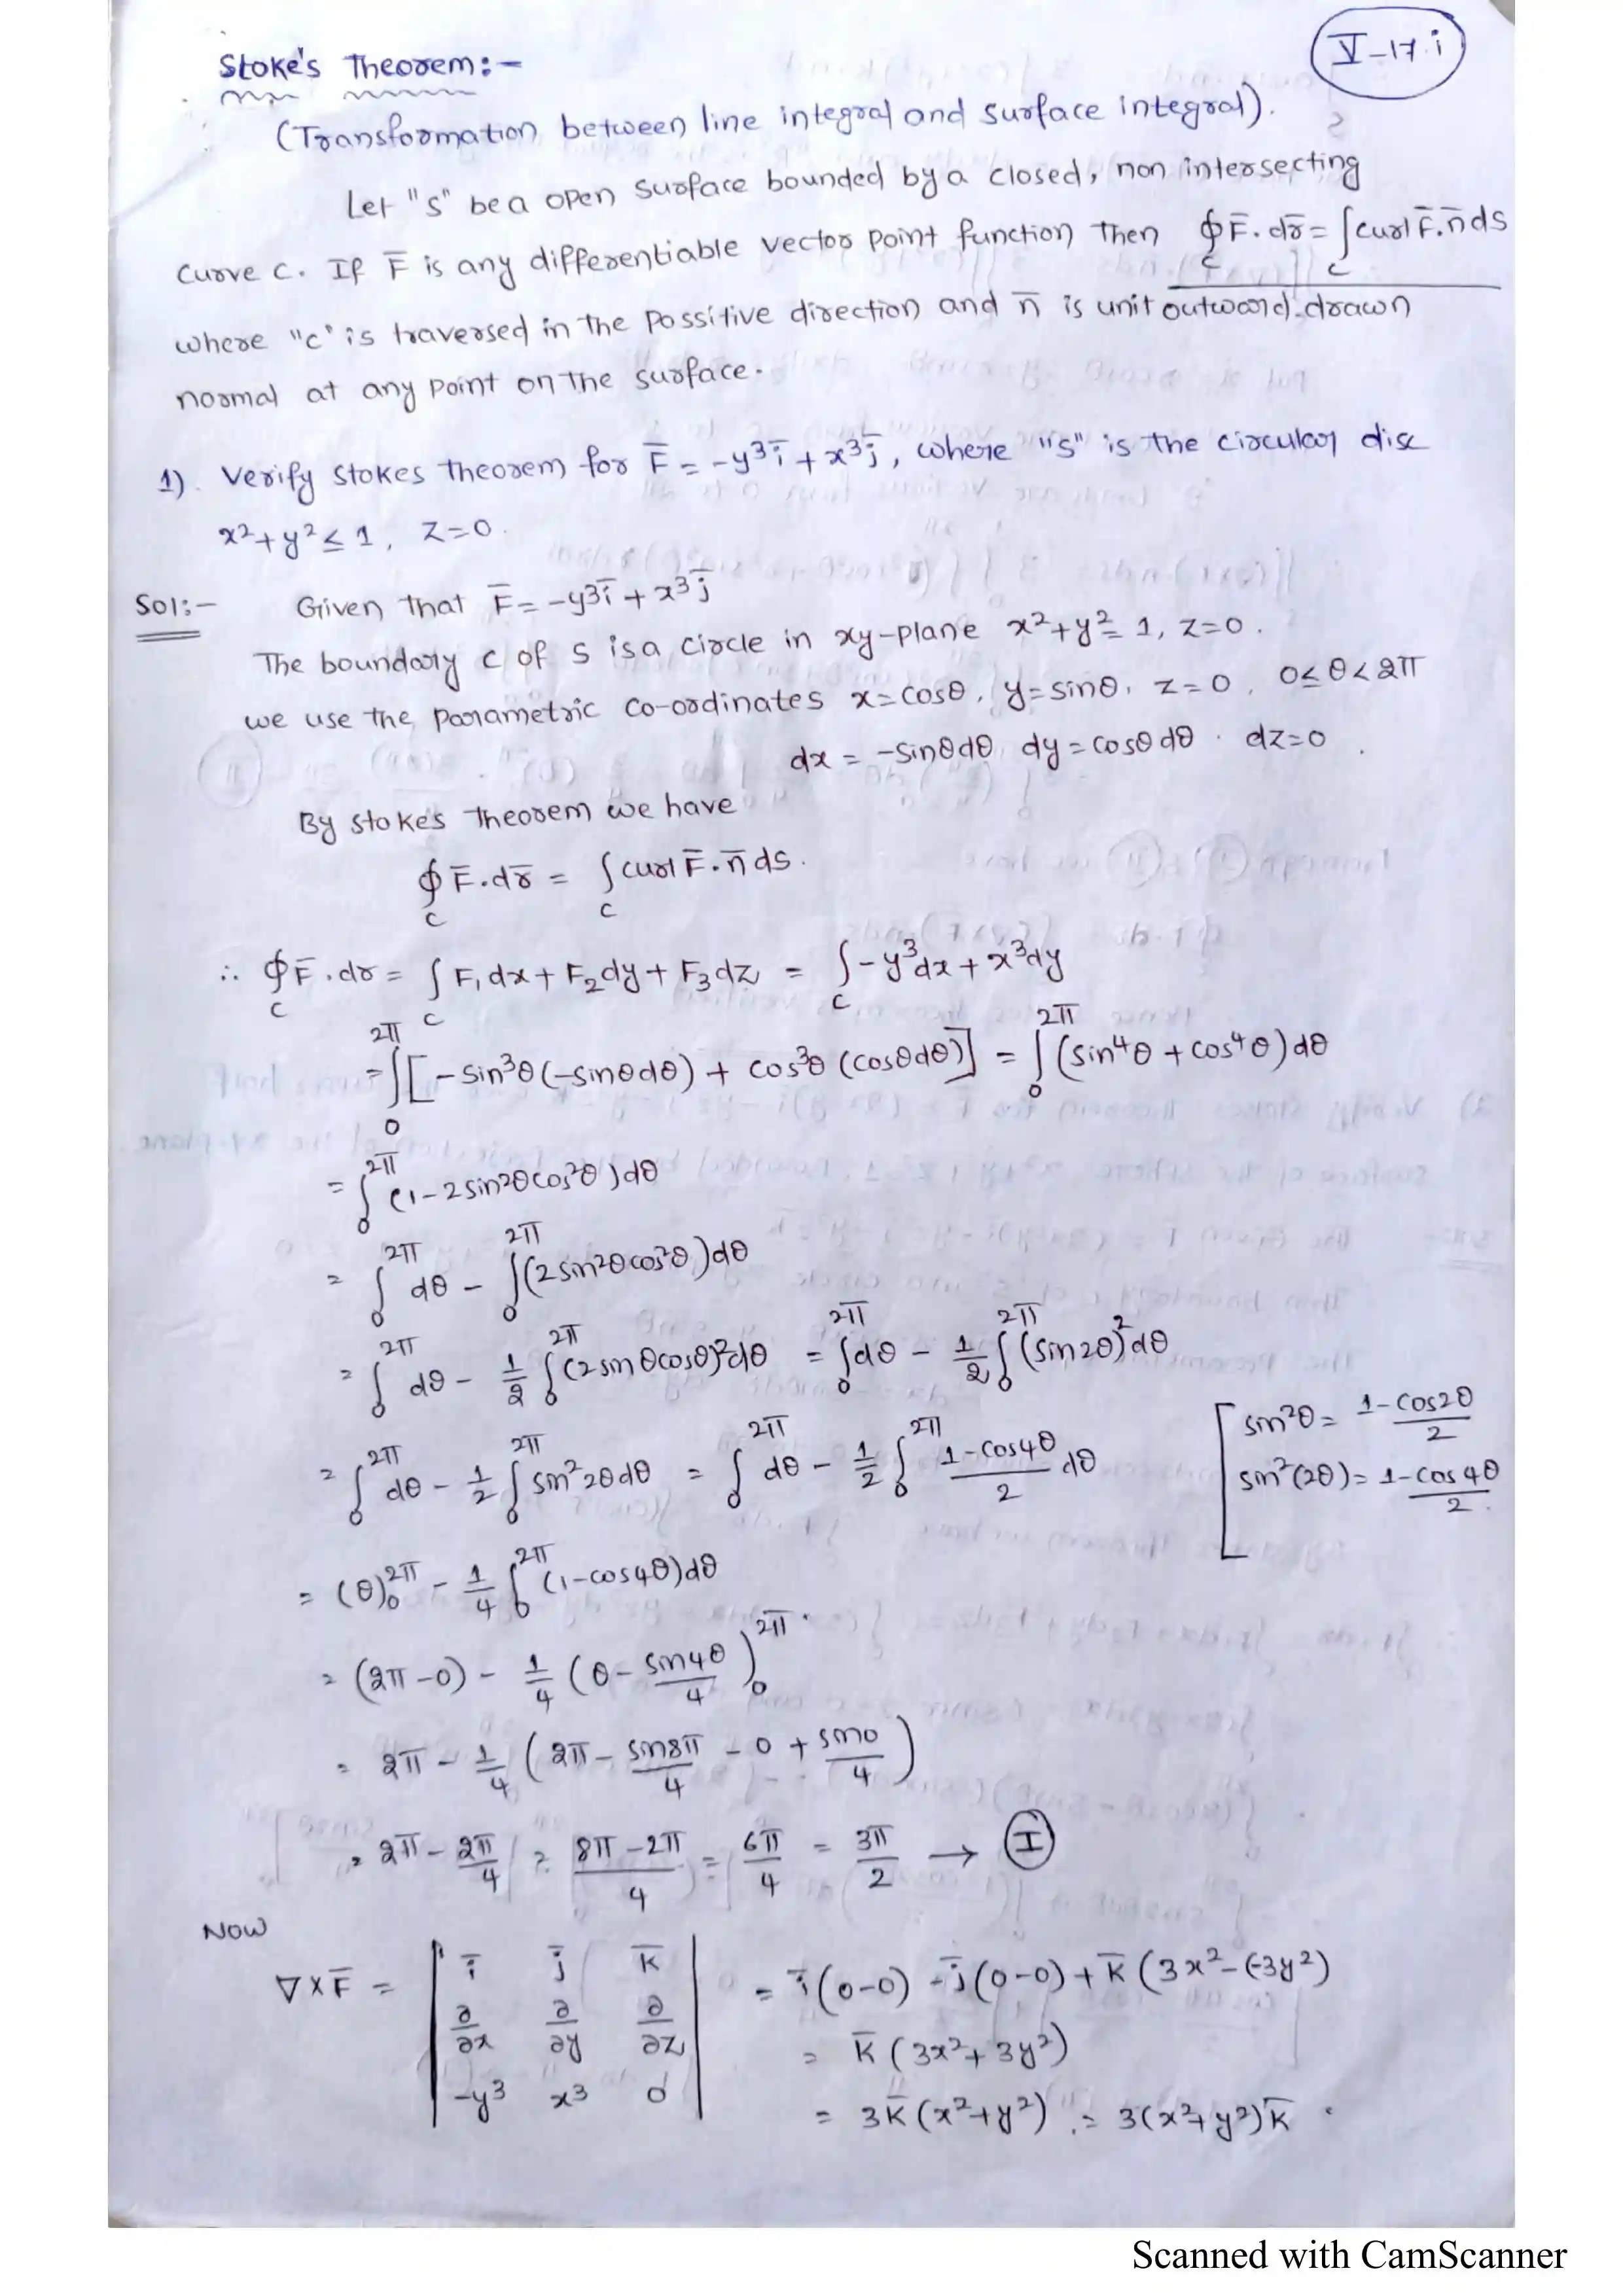 V-17.i
Stoke's Theorem:-
(Transformation between line integral and surface integral).
Let "S" be a open surface bounded by a closed, non intersecting
curve C. If F̅ is any differentiable vector point function then ∮_C F̅.dr̅ = ∫_C curl F̅.n̅ ds
where "c" is traversed in the possitive direction and n̅ is unit outward drawn
normal at any point on the surface.
1). Verify stokes theorem for F̅ = -y³i̅ + x³j̅, where "S" is the circular disc
x²+y² ≤ 1, z=0.
Sol:- Given that F̅ = -y³i̅ + x³j̅
The boundary c of s is a circle in xy-plane x²+y²=1, z=0.
we use the parametric co-ordinates x=cosθ, y=sinθ, z=0, 0≤θ<2π
dx = -sinθdθ dy = cosθdθ . dz=0.
By stoke's theorem we have
∮_C F̅.dr̅ = ∫_C curl F̅.n̅ ds.
∴ ∮_C F̅.dr = ∫_C F₁dx + F₂dy + F₃dz = ∫_C -y³dx + x³dy
= ∫₀^2π [-sin³θ(-sinθdθ) + cos³θ(cosθdθ)] = ∫₀^2π (sin⁴θ + cos⁴θ)dθ
= ∫₀^2π (1-2sin²θcos²θ)dθ
= ∫₀^2π dθ - ∫₀^2π (2sin²θcos²θ)dθ
= ∫₀^2π dθ - 1/2 ∫₀^2π (2sinθcosθ)²dθ = ∫₀^2π dθ - 1/2 ∫₀^2π (sin2θ)²dθ
= ∫₀^2π dθ - 1/2 ∫₀^2π sin²2θdθ = ∫₀^2π dθ - 1/2 ∫₀^2π (1-cos4θ)/2 dθ
[sin²θ = (1-cos2θ)/2
sin²(2θ) = (1-cos4θ)/2.
= (θ)₀^2π - 1/4 ∫₀^2π (1-cos4θ)dθ
= (2π-0) - 1/4 (θ - sin4θ/4)₀^2π
= 2π - 1/4 (2π - sin8π/4 - 0 + sin0/4)
= 2π - 2π/4 = (8π-2π)/4 = 6π/4 = 3π/2 → (I)
Now
∇×F̅ = | i̅ j̅ k̅ | = i̅(0-0) - j̅(0-0) + k̅(3x²-(-3y²)
| ∂/∂x ∂/∂y ∂/∂z | = k̅(3x²+3y²)
| -y³ x³ 0 | = 3k̅(x²+y²) = 3(x²+y²)k̅.
Scanned with CamScanner